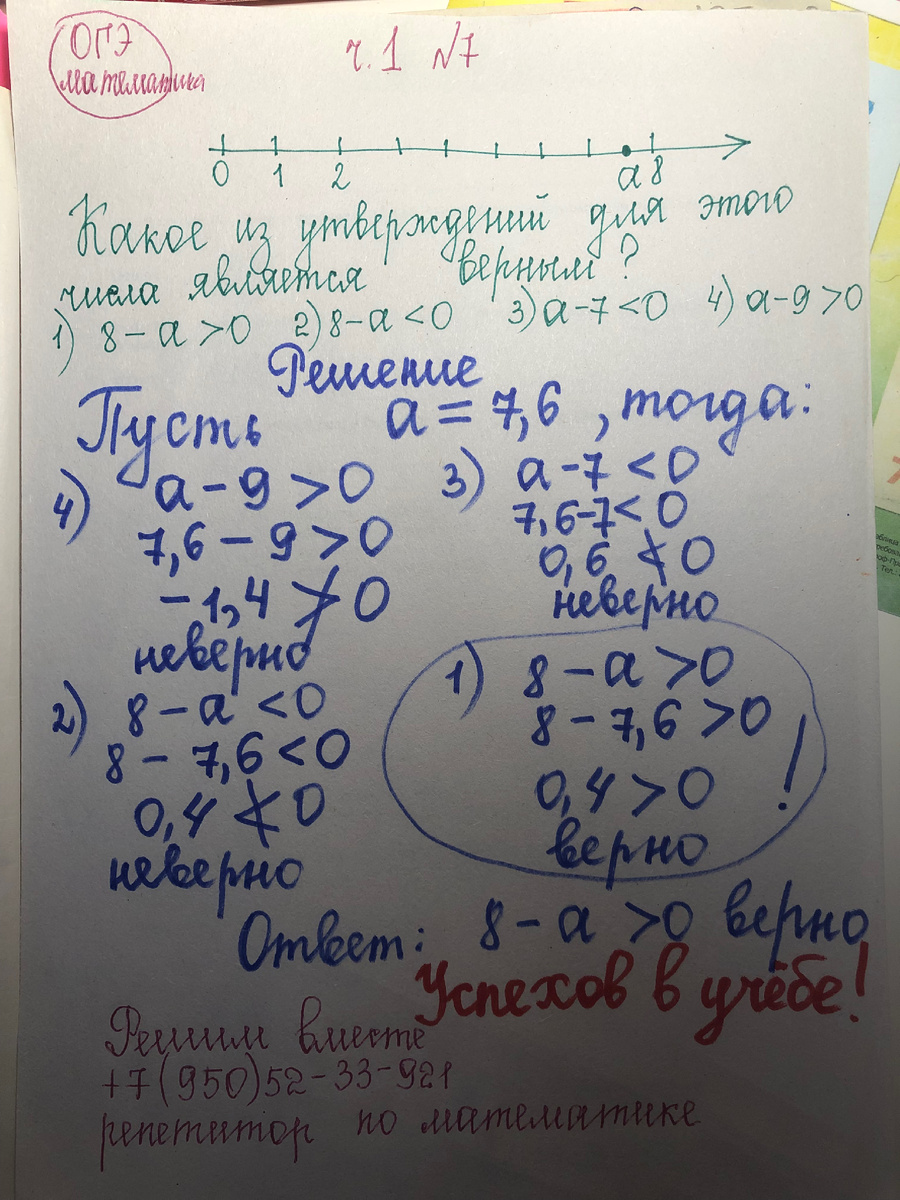 ОГЭ
математика
ч.1 №7
0 1 2 a 8
Какое из утверждений для этого
числа является верным?
1) 8-a>0 2) 8-a<0 3) a-7<0 4) a-9>0
Решение
Пусть a=7,6, тогда:
4) a-9>0
7,6-9>0
-1,4≯0
неверно
3) a-7<0
7,6-7<0
0,6≮0
неверно
2) 8-a<0
8-7,6<0
0,4≮0
неверно
1) 8-a>0
8-7,6>0
0,4>0 !
верно
Ответ: 8-a>0 верно
Успехов в учёбе!
Решим вместе
+7(950)52-33-921
репетитор по математике